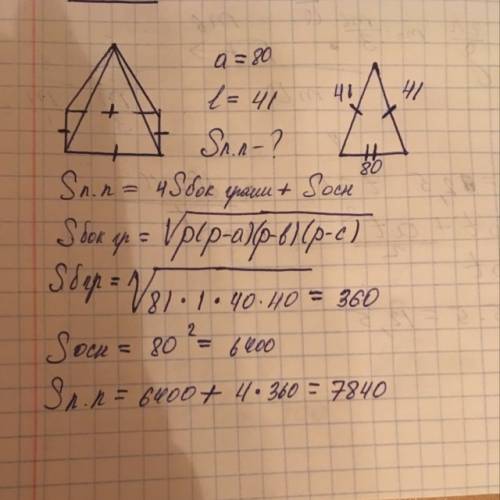 a = 80
l = 41
Sп.п - ?
41 41
80
Sп.п = 4Sбок грани + Sосн
Sбок гр = √p(p-a)(p-в)(p-c)
Sбгр = √81·1·40·40 = 360
Sосн = 80² = 6400
Sп.п = 6400 + 4·360 = 7840